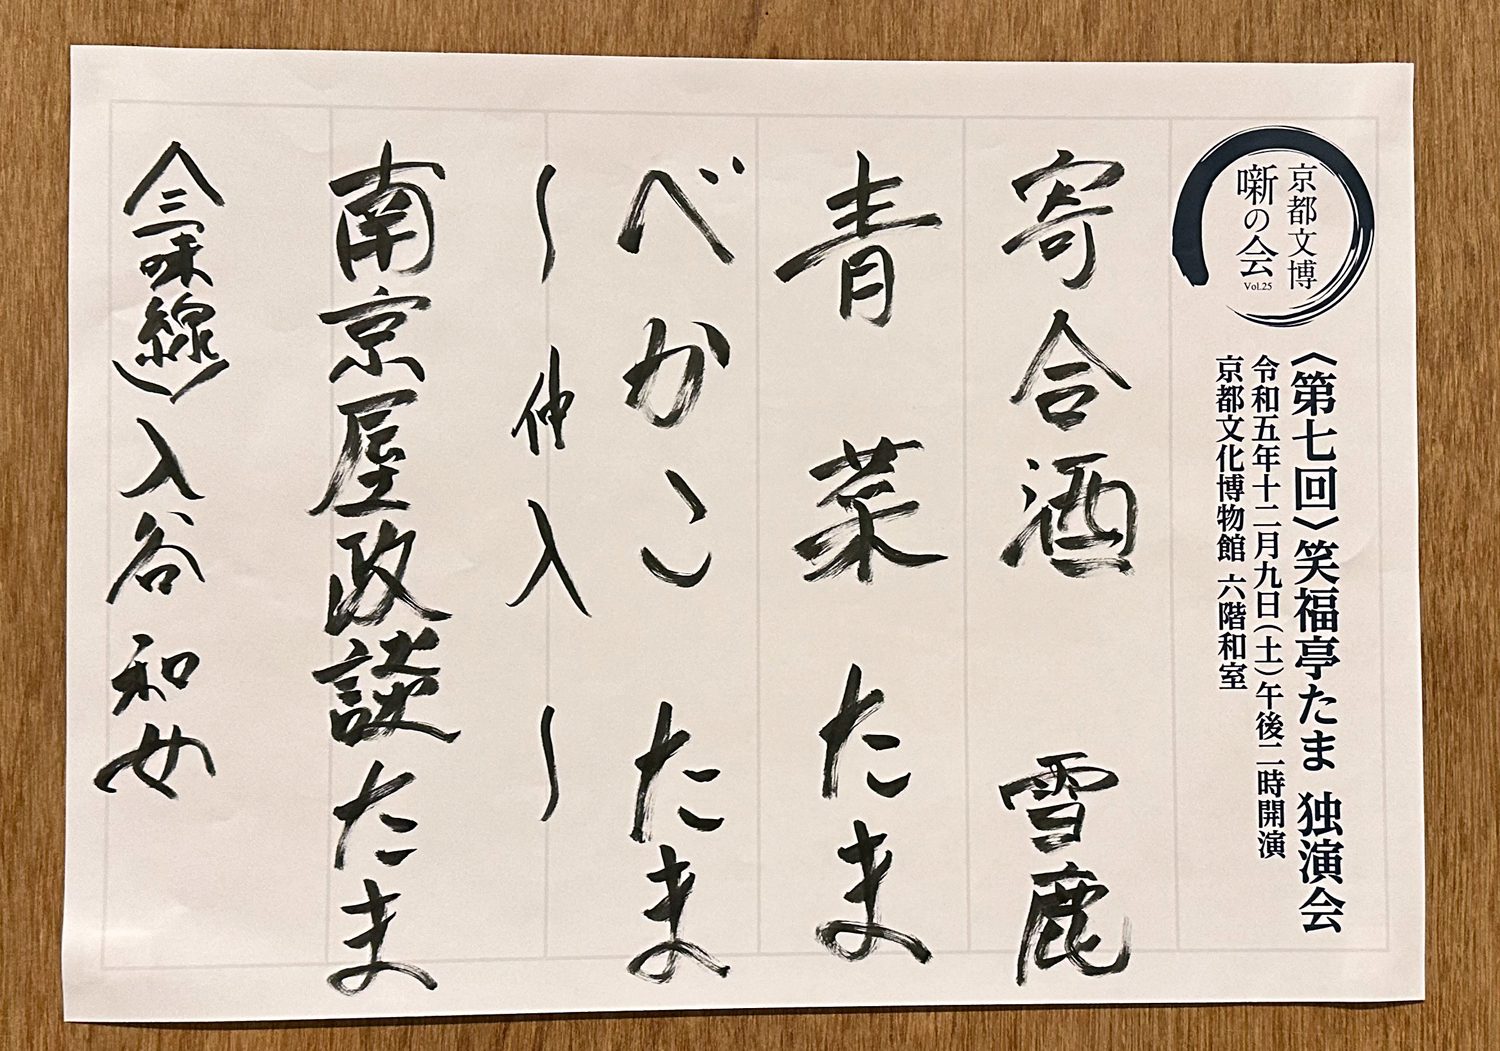 京都文博
噺の会
Vol.25
〈第七回〉笑福亭たま 独演会
令和五年十二月九日(土)午後二時開演
京都文化博物館 六階和室
寄合酒 雪鹿
青菜 たま
べかこ たま
〜仲入〜
南京屋政談 たま
〈三味線〉入谷和女